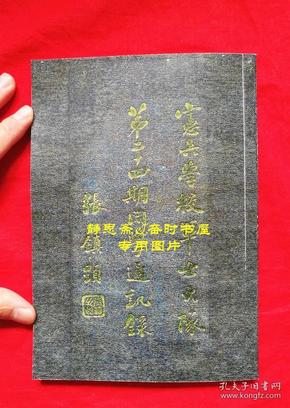 憲兵學校軍士大隊
第二十四期同學通訊錄
張鎮題
静思斋/备时书屋
专用图片
孔夫子旧书网